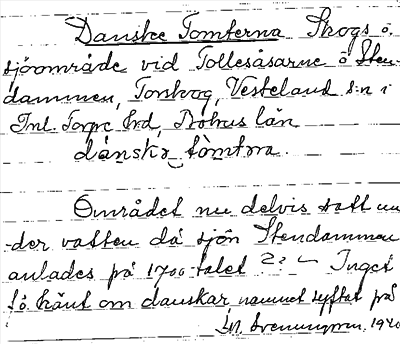 Danske Tomterna Skogs o.
sjöområde vid Tollesåsarne o Sten-
dammen, Tonhog, Vesteland s:n i
Inl. Torpe hrd, Bohus län
dánskə tòmtṇa.
Området nu delvis satt un-
der vatten då sjön Stendammen
anlades på 1700-talet ?? Inget
f.ö. känt om danskar namnet syftat på